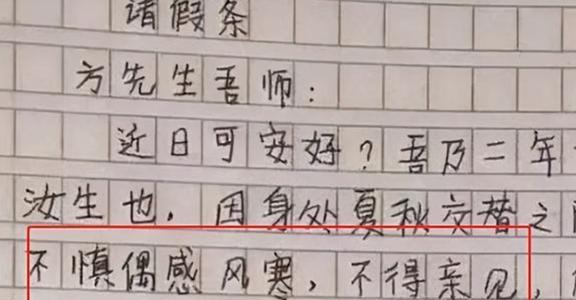 请假条
方先生吾师：
近日可安好？吾乃二年
汝生也，因身处夏秋交替之
不慎偶感风寒，不得亲见，